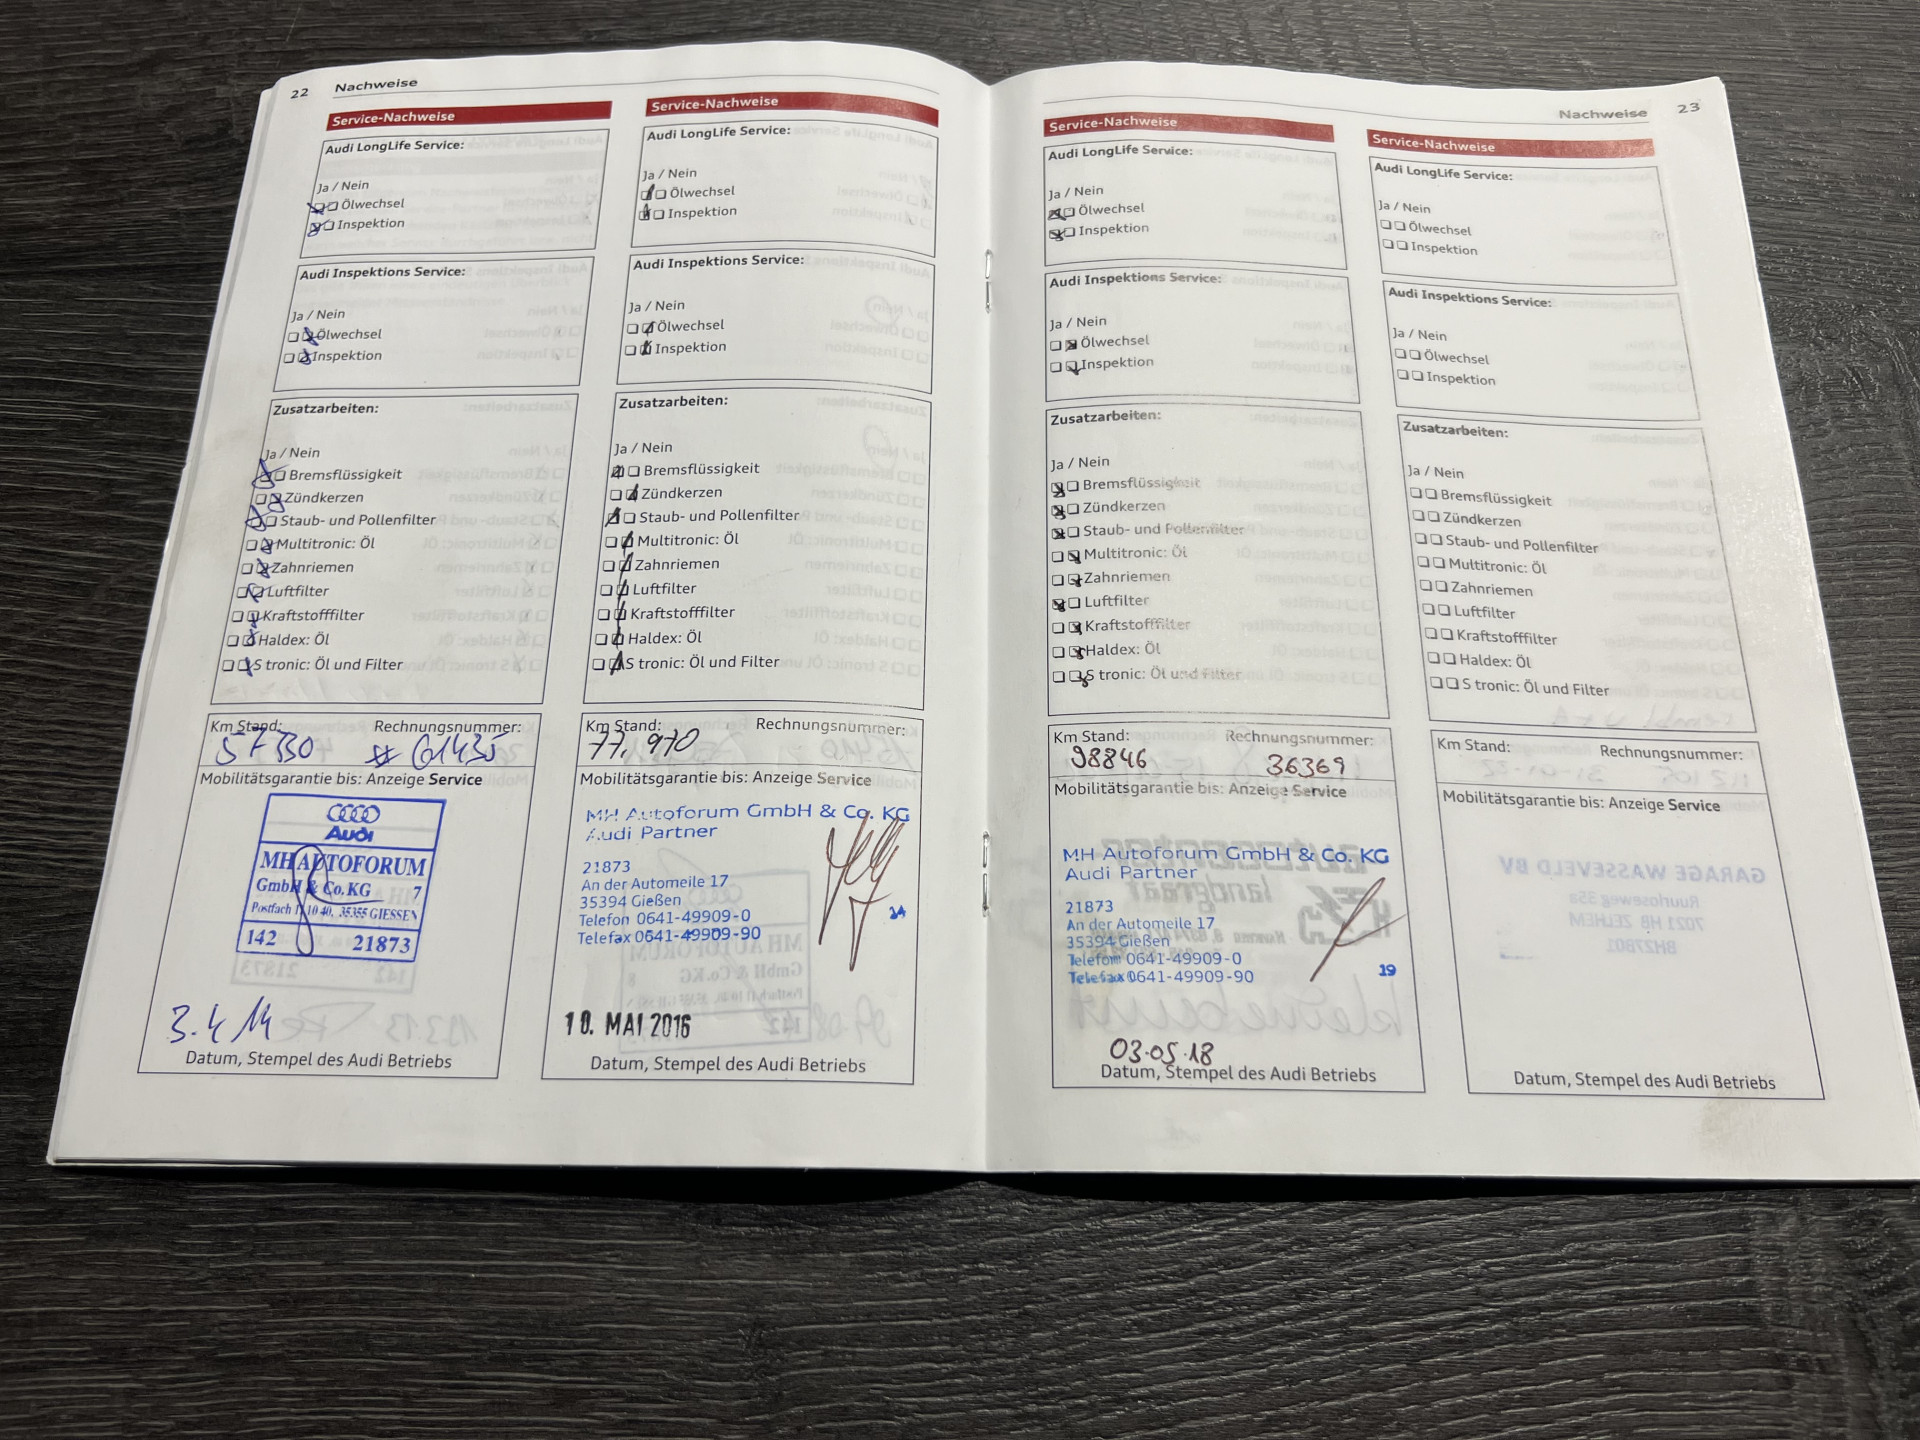 22 Nachweise
Service-Nachweise
Audi LongLife Service:
Ja / Nein
Ölwechsel
Inspektion
Audi Inspektions Service:
Ja / Nein
Ölwechsel
Inspektion
Zusatzarbeiten:
Ja / Nein
Bremsflüssigkeit
Zündkerzen
Staub- und Pollenfilter
Multitronic: Öl
Zahnriemen
Luftfilter
Kraftstofffilter
Haldex: Öl
S tronic: Öl und Filter
Km Stand: Rechnungsnummer:
57330 61435
Mobilitätsgarantie bis: Anzeige Service
Audi
MH AUTOFORUM
GmbH & Co. KG 7
Postfach 11 10 40, 35355 GIESSEN
142 21873
3.4.14
Datum, Stempel des Audi Betriebs
Service-Nachweise
Audi LongLife Service:
Ja / Nein
Ölwechsel
Inspektion
Audi Inspektions Service:
Ja / Nein
Ölwechsel
Inspektion
Zusatzarbeiten:
Ja / Nein
Bremsflüssigkeit
Zündkerzen
Staub- und Pollenfilter
Multitronic: Öl
Zahnriemen
Luftfilter
Kraftstofffilter
Haldex: Öl
S tronic: Öl und Filter
Km Stand: Rechnungsnummer:
77.970
Mobilitätsgarantie bis: Anzeige Service
MH Autoforum GmbH & Co. KG
Audi Partner
21873
An der Automeile 17
35394 Gießen
Telefon 0641-49909-0
Telefax 0641-49909-90
14
10. MAI 2016
Datum, Stempel des Audi Betriebs
Nachweise 23
Service-Nachweise
Audi LongLife Service:
Ja / Nein
Ölwechsel
Inspektion
Audi Inspektions Service:
Ja / Nein
Ölwechsel
Inspektion
Zusatzarbeiten:
Ja / Nein
Bremsflüssigkeit
Zündkerzen
Staub- und Pollenfilter
Multitronic: Öl
Zahnriemen
Luftfilter
Kraftstofffilter
Haldex: Öl
S tronic: Öl und Filter
Km Stand: Rechnungsnummer:
98846 36369
Mobilitätsgarantie bis: Anzeige Service
MH Autoforum GmbH & Co. KG
Audi Partner
21873
An der Automeile 17
35394 Gießen
Telefon 0641-49909-0
Telefax 0641-49909-90
19
03.05.18
Datum, Stempel des Audi Betriebs
Service-Nachweise
Audi LongLife Service:
Ja / Nein
Ölwechsel
Inspektion
Audi Inspektions Service:
Ja / Nein
Ölwechsel
Inspektion
Zusatzarbeiten:
Ja / Nein
Bremsflüssigkeit
Zündkerzen
Staub- und Pollenfilter
Multitronic: Öl
Zahnriemen
Luftfilter
Kraftstofffilter
Haldex: Öl
S tronic: Öl und Filter
Km Stand: Rechnungsnummer:
Mobilitätsgarantie bis: Anzeige Service
Datum, Stempel des Audi Betriebs